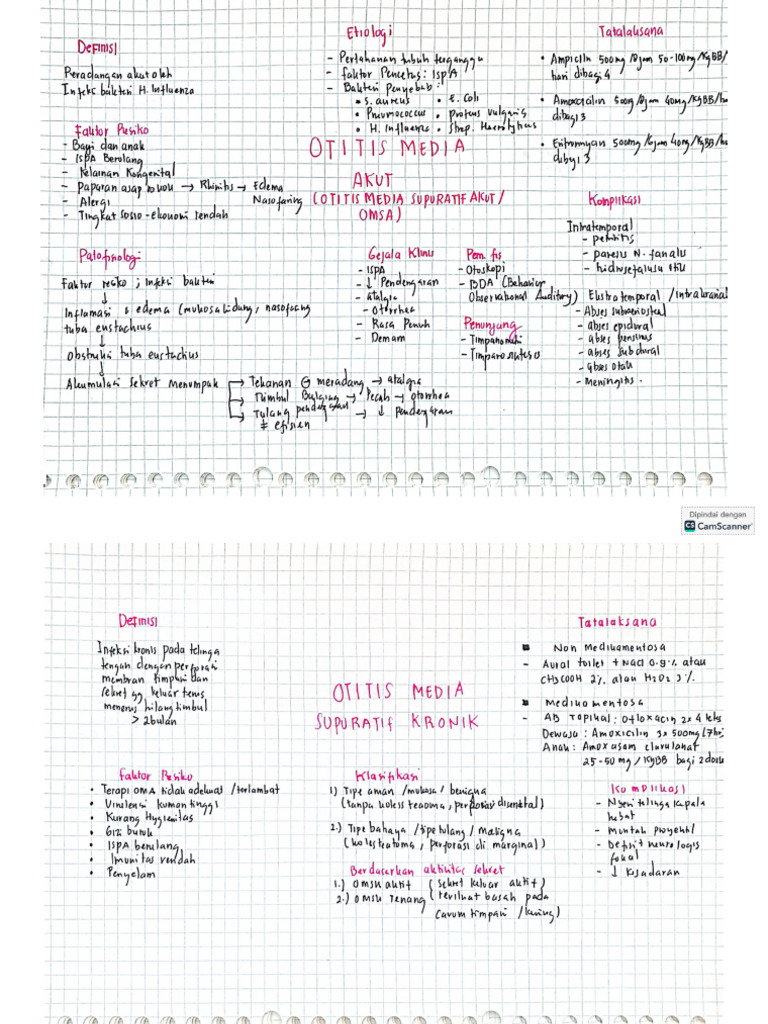 Definisi
Peradangan akut oleh
Infeksi bakteri H. Influenza
Faktor Risiko
- Bayi dan anak
- ISPA Berulang
- Kelainan Kongenital
- Paparan asap rokok → Rhinitis → Edema Nasofaring
- Alergi
- Tingkat sosio-ekonomi rendah
Etiologi
- Pertahanan tubuh terganggu
- faktor Pencetus: ISPA
- Bakteri Penyebab:
• S. aureus • E. Coli
• Pneumococcus • proteus vulgaris
• H. Influenza • Strep.
OTITIS MEDIA
AKUT
(OTITIS MEDIA SUPURATIF AKUT/
OMSA)
Tatalaksana
• Ampicilin 500mg /6jam 50-100mg/KgBB/
hari dibagi 4
• Amoxicilin 500mg /8jam 40mg/KgBB/
dibagi 3
• 500mg /6jam 40mg/KgBB/
dibagi 3
Komplikasi
Intratemporal
- petritis
- paresis N.
-
Ekstratemporal / Intrakranial
- Abses subperiosteal
- abses epidural
- abses
- abses subdural
- abses otak
- Meningitis.
Patofisiologi
Faktor resiko ; infeksi bakteri
↓
Inflamasi & edema (mukosa hidung, nasofaring
tuba eustachius
↓
Obstruksi tuba eustachius
↓
Akumulasi Sekret Menumpuk → Tekanan ⊖ meradang → otalgia
→ Timbul Bulging → Pecah → otorrhea
→ Tulang pendengaran → ↓ Pendengaran
≠ efisien
Gejala Klinis
- ISPA
- ↓ Pendengaran
- otalgia
- otorrhea
- Rasa Penuh
- Demam
Pem. fis
- Otoskopi
- BOA (Behavior
Observational Auditory)
Penunjang
- Timpanometri
- Timpanosintesis
Dipindai dengan
CS CamScanner
Definisi
Infeksi kronis pada telinga
tengah dengan perforasi
membran timpani dan
sekret yg keluar terus
menerus hilang timbul
> 2bulan
OTITIS MEDIA
SUPURATIF KRONIK
Tatalaksana
■ Non Medikamentosa
- Aural toilet + NaCl 0.9% atau
CH3COOH 2% atau H2O2 3%
■ Medikamentosa
- AB Topikal: Ofloxacin 2x4 tetes
Dewasa: Amoxicilin 3x500mg (7
Anak: Amoxasam clavulanat
25-50 mg/KgBB bagi 2dosis
Faktor Risiko
• Terapi OMA tidak adekuat /terlambat
• Virulensi kuman tinggi
• Kurang Hygienitas
• Gizi buruk
• ISPA berulang
• Imunitas rendah
• Penyelam
Klasifikasi
1.) Tipe aman /mukosa / benigna
(tanpa kolesteatoma, perforasi disentral)
2.) Tipe bahaya /tipe tulang / maligna
(kolesteatoma, perforasi di marginal)
Berdasarkan aktivitas sekret
1.) OMSK aktif (Sekret keluar aktif)
2.) OMSK tenang (terlihat basah pada
cavum timpani /kering)
Komplikasi
- Nyeri telinga kepala
hebat
- Muntah proyektil
- Defisit neurologis
fokal
- ↓ kesadaran